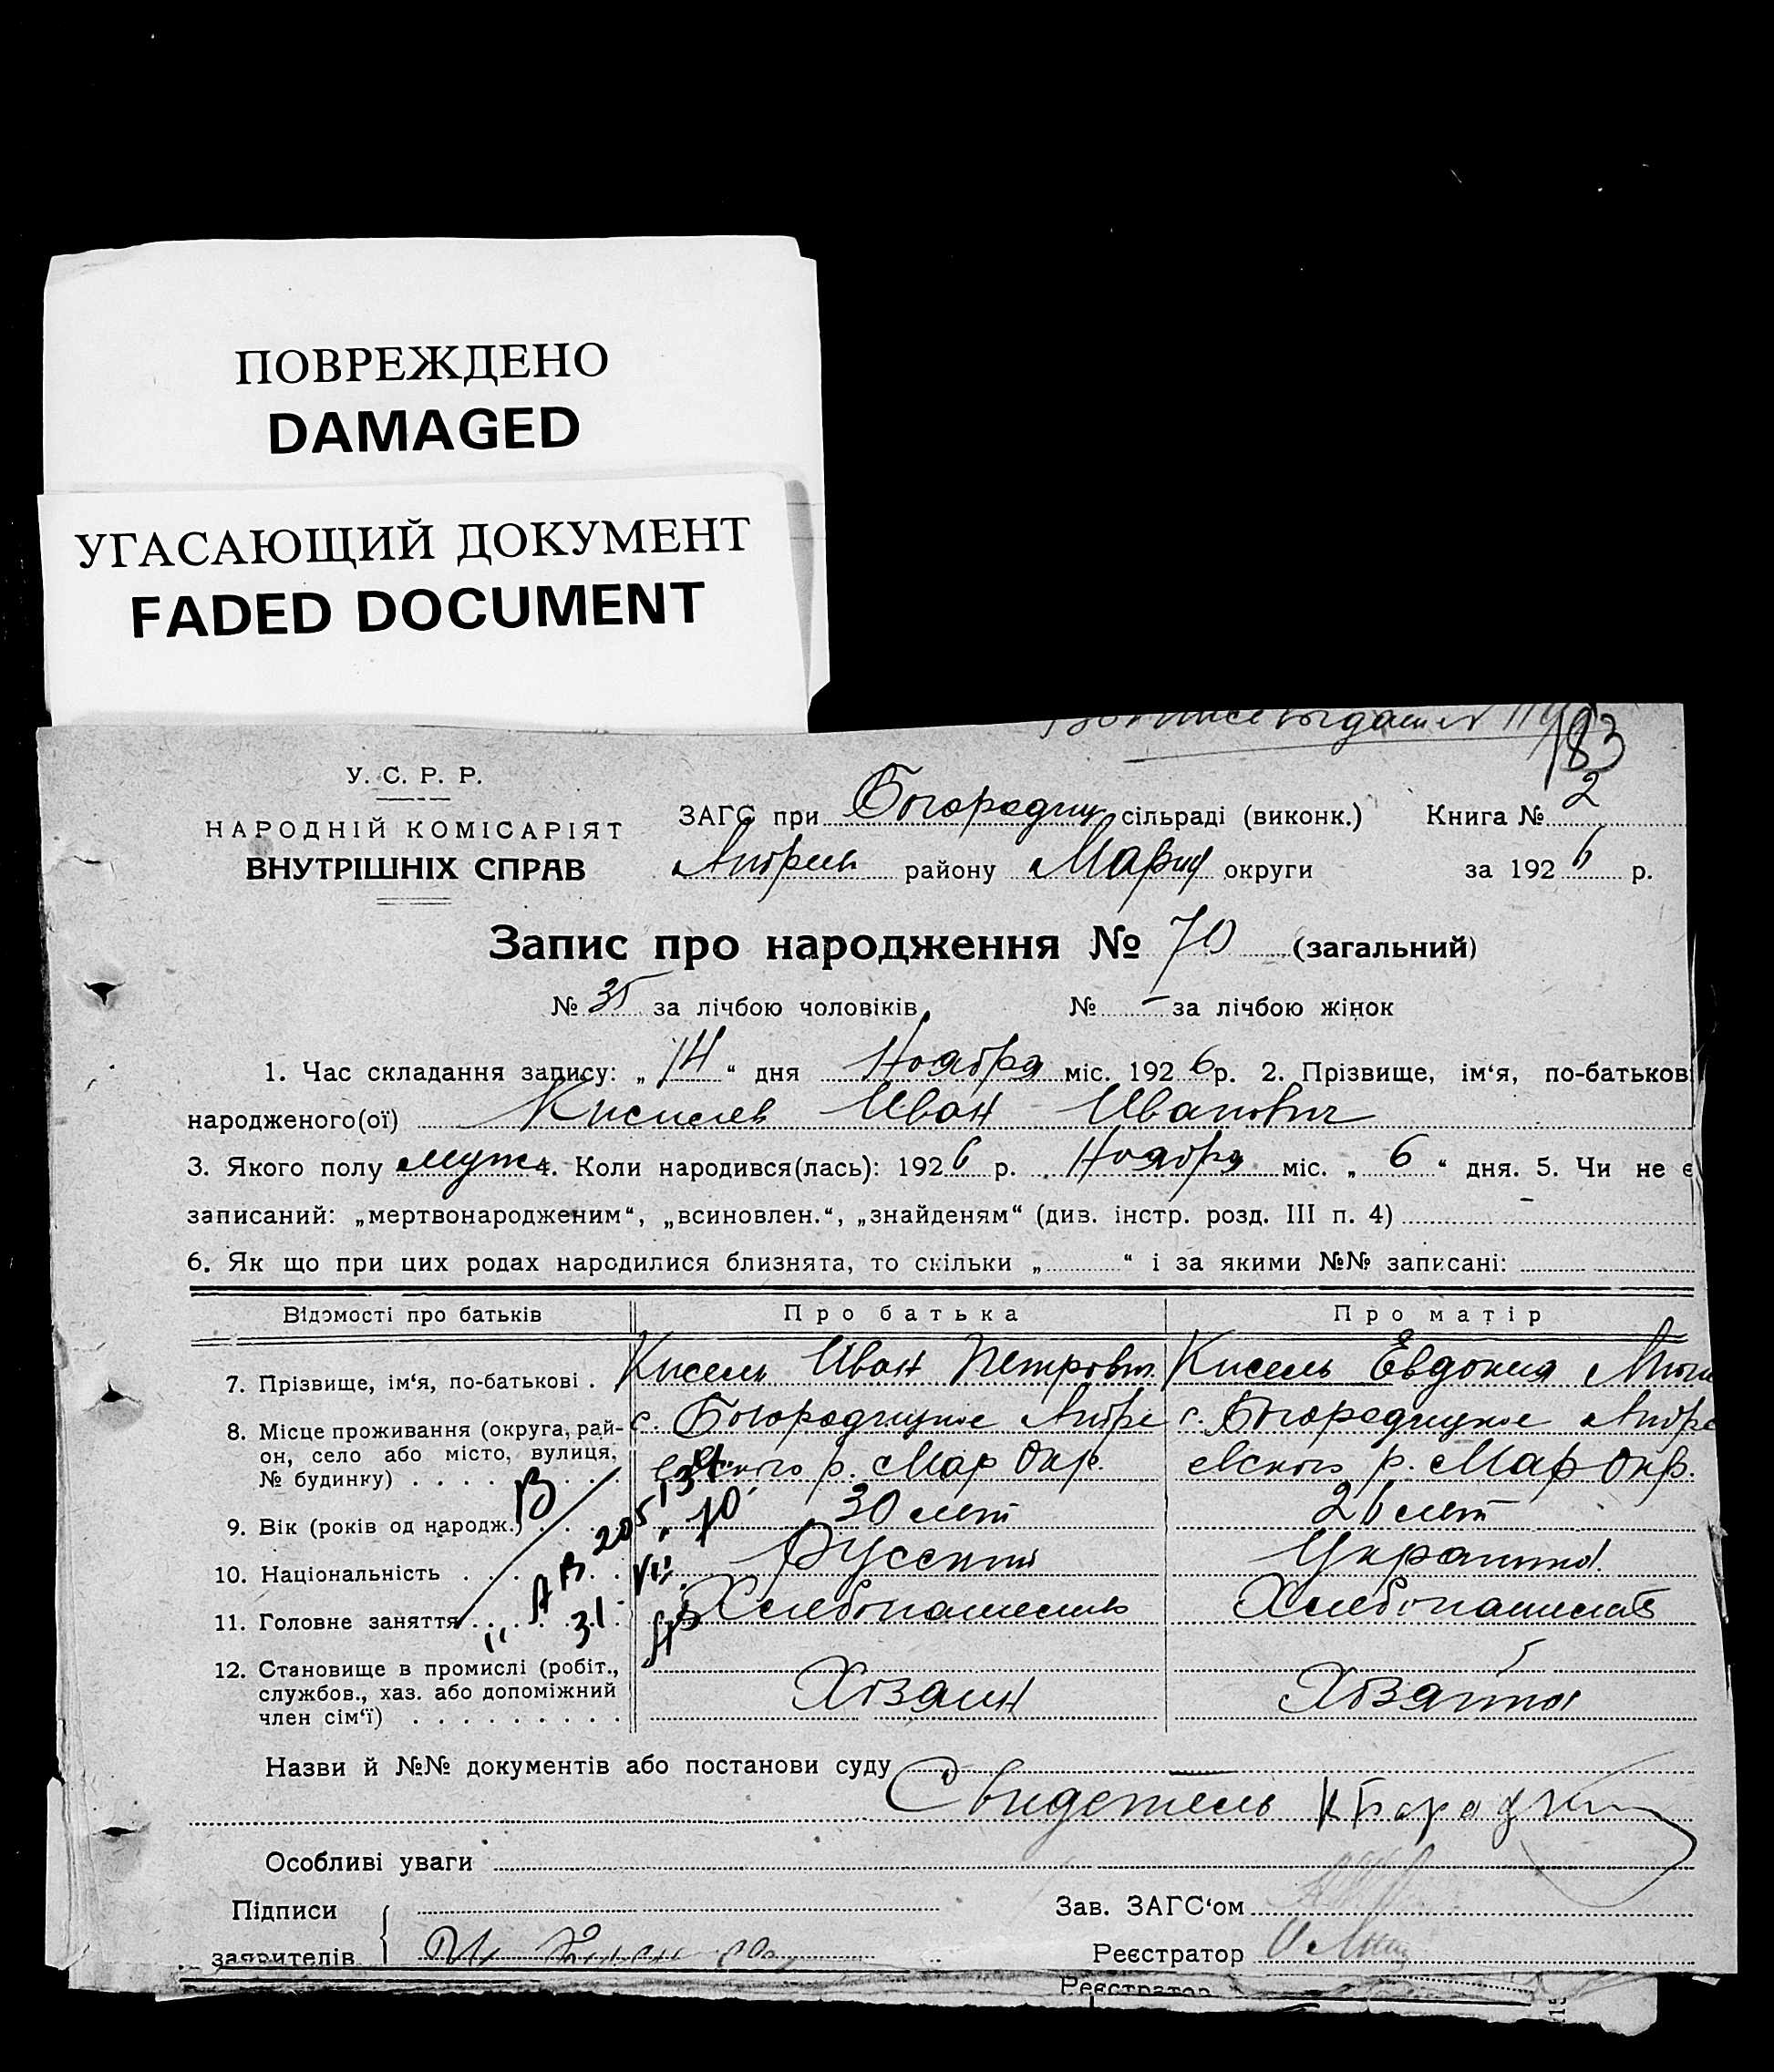 ПОВРЕЖДЕНО
DAMAGED
УГАСАЮЩИЙ ДОКУМЕНТ
FADED DOCUMENT
183
У. С. Р. Р.
НАРОДНІЙ КОМІСАРІЯТ
ВНУТРІШНІХ СПРАВ
ЗАГС при Богородиц сільраді (виконк.) Книга № 2
району Мариуп округи за 1926 р.
Запис про народження № 70 (загальний)
№ 35 за лічбою чоловіків № – за лічбою жінок
1. Час складання запису: „14“ дня Ноября міс. 1926 р. 2. Прізвище, ім‘я, по-батькові
народженого(ої) Киселев Иван Иванович
3. Якого полу муж 4. Коли народився(лась): 1926 р. Ноября міс. „6“ дня. 5. Чи не є
записаний: „мертвонародженим“, „всиновлен.“, „знайденям“ (див. інстр. розд. III п. 4) –
6. Як що при цих родах народилися близнята, то скільки „ “ і за якими №№ записані:
Відомості про батьків Про батька Про матір
7. Прізвище, ім‘я, по-батькові . Кисель Иван Петрович Кисель Евдокия
8. Місце проживання (округа, рай- с. Богородицкое Андре с. Богородицкое Андре
он, село або місто, вулиця, евского р. Мар Окр. евского р. Мар Окр.
№ будинку)
9. Вік (років од народж.) 30 лет 26 лет
10. Національність Русский Украинка
11. Головне заняття Хлебопашець Хлебопашество
12. Становище в промислі (робіт.,
службов., хаз. або допоміжний Хозяин Хозяйка
член сім‘ї)
Назви й №№ документів або постанови суду
Свидетель
Особливі уваги
Підписи Зав. ЗАГС‘ом
заявителів Реєстратор
Реєстратор